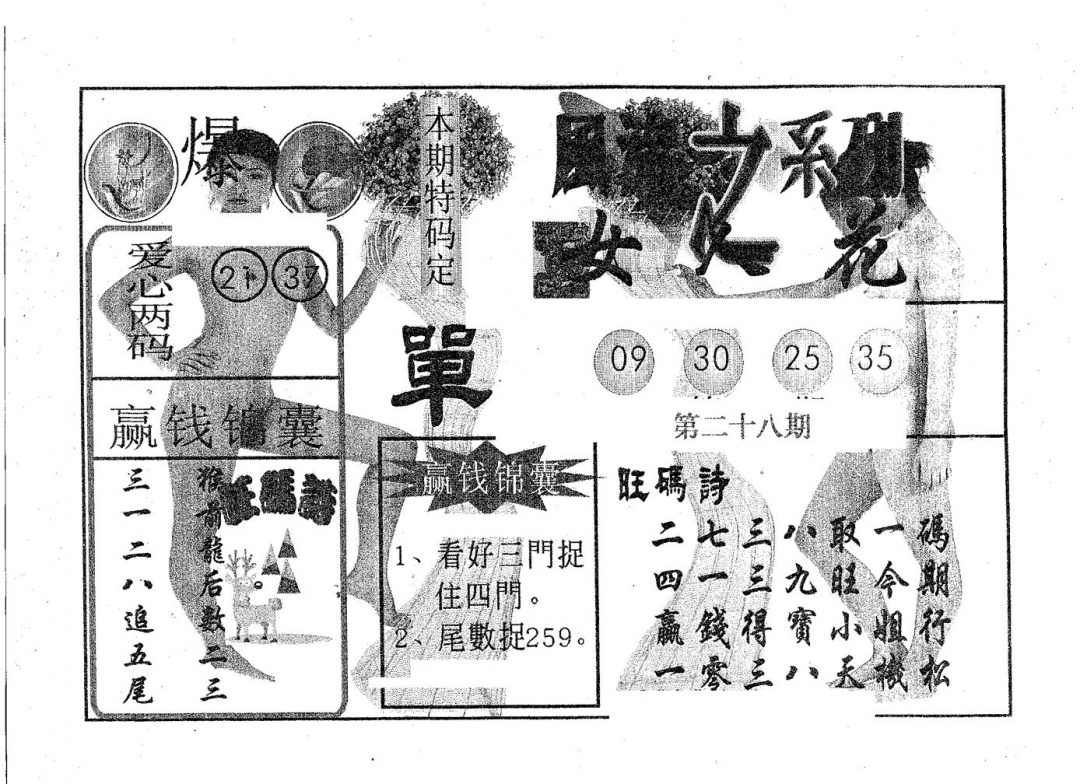 爆
本期特码定
單
之系列
女人花
爱心两码
21 37
赢钱锦囊
猴前龍后數二三
三一二八追五尾
旺碼詩
赢钱锦囊
1、看好三門捉
住四門。
2、尾數捉259。
09 30 25 35
第二十八期
旺碼詩
二七三八取一碼
四一三九旺今期
赢錢得寶小姐行
一零三八天機松